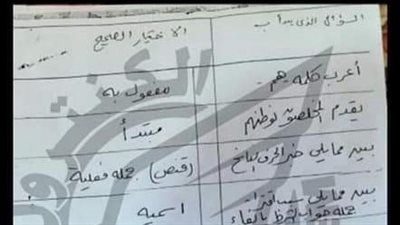 السؤال الذي يبدأ ب	الاختيار الصحيح
أعرب كلمة يهم	مفعول به
يقدم المخلصون لوطنهم	مبتدأ
بين مما يلي خبر الحرف الناسخ	(قنص) جملة فعلية
بين مما يلي سبب اقتران
جملة جواب الشرط بالفاء	اسمية